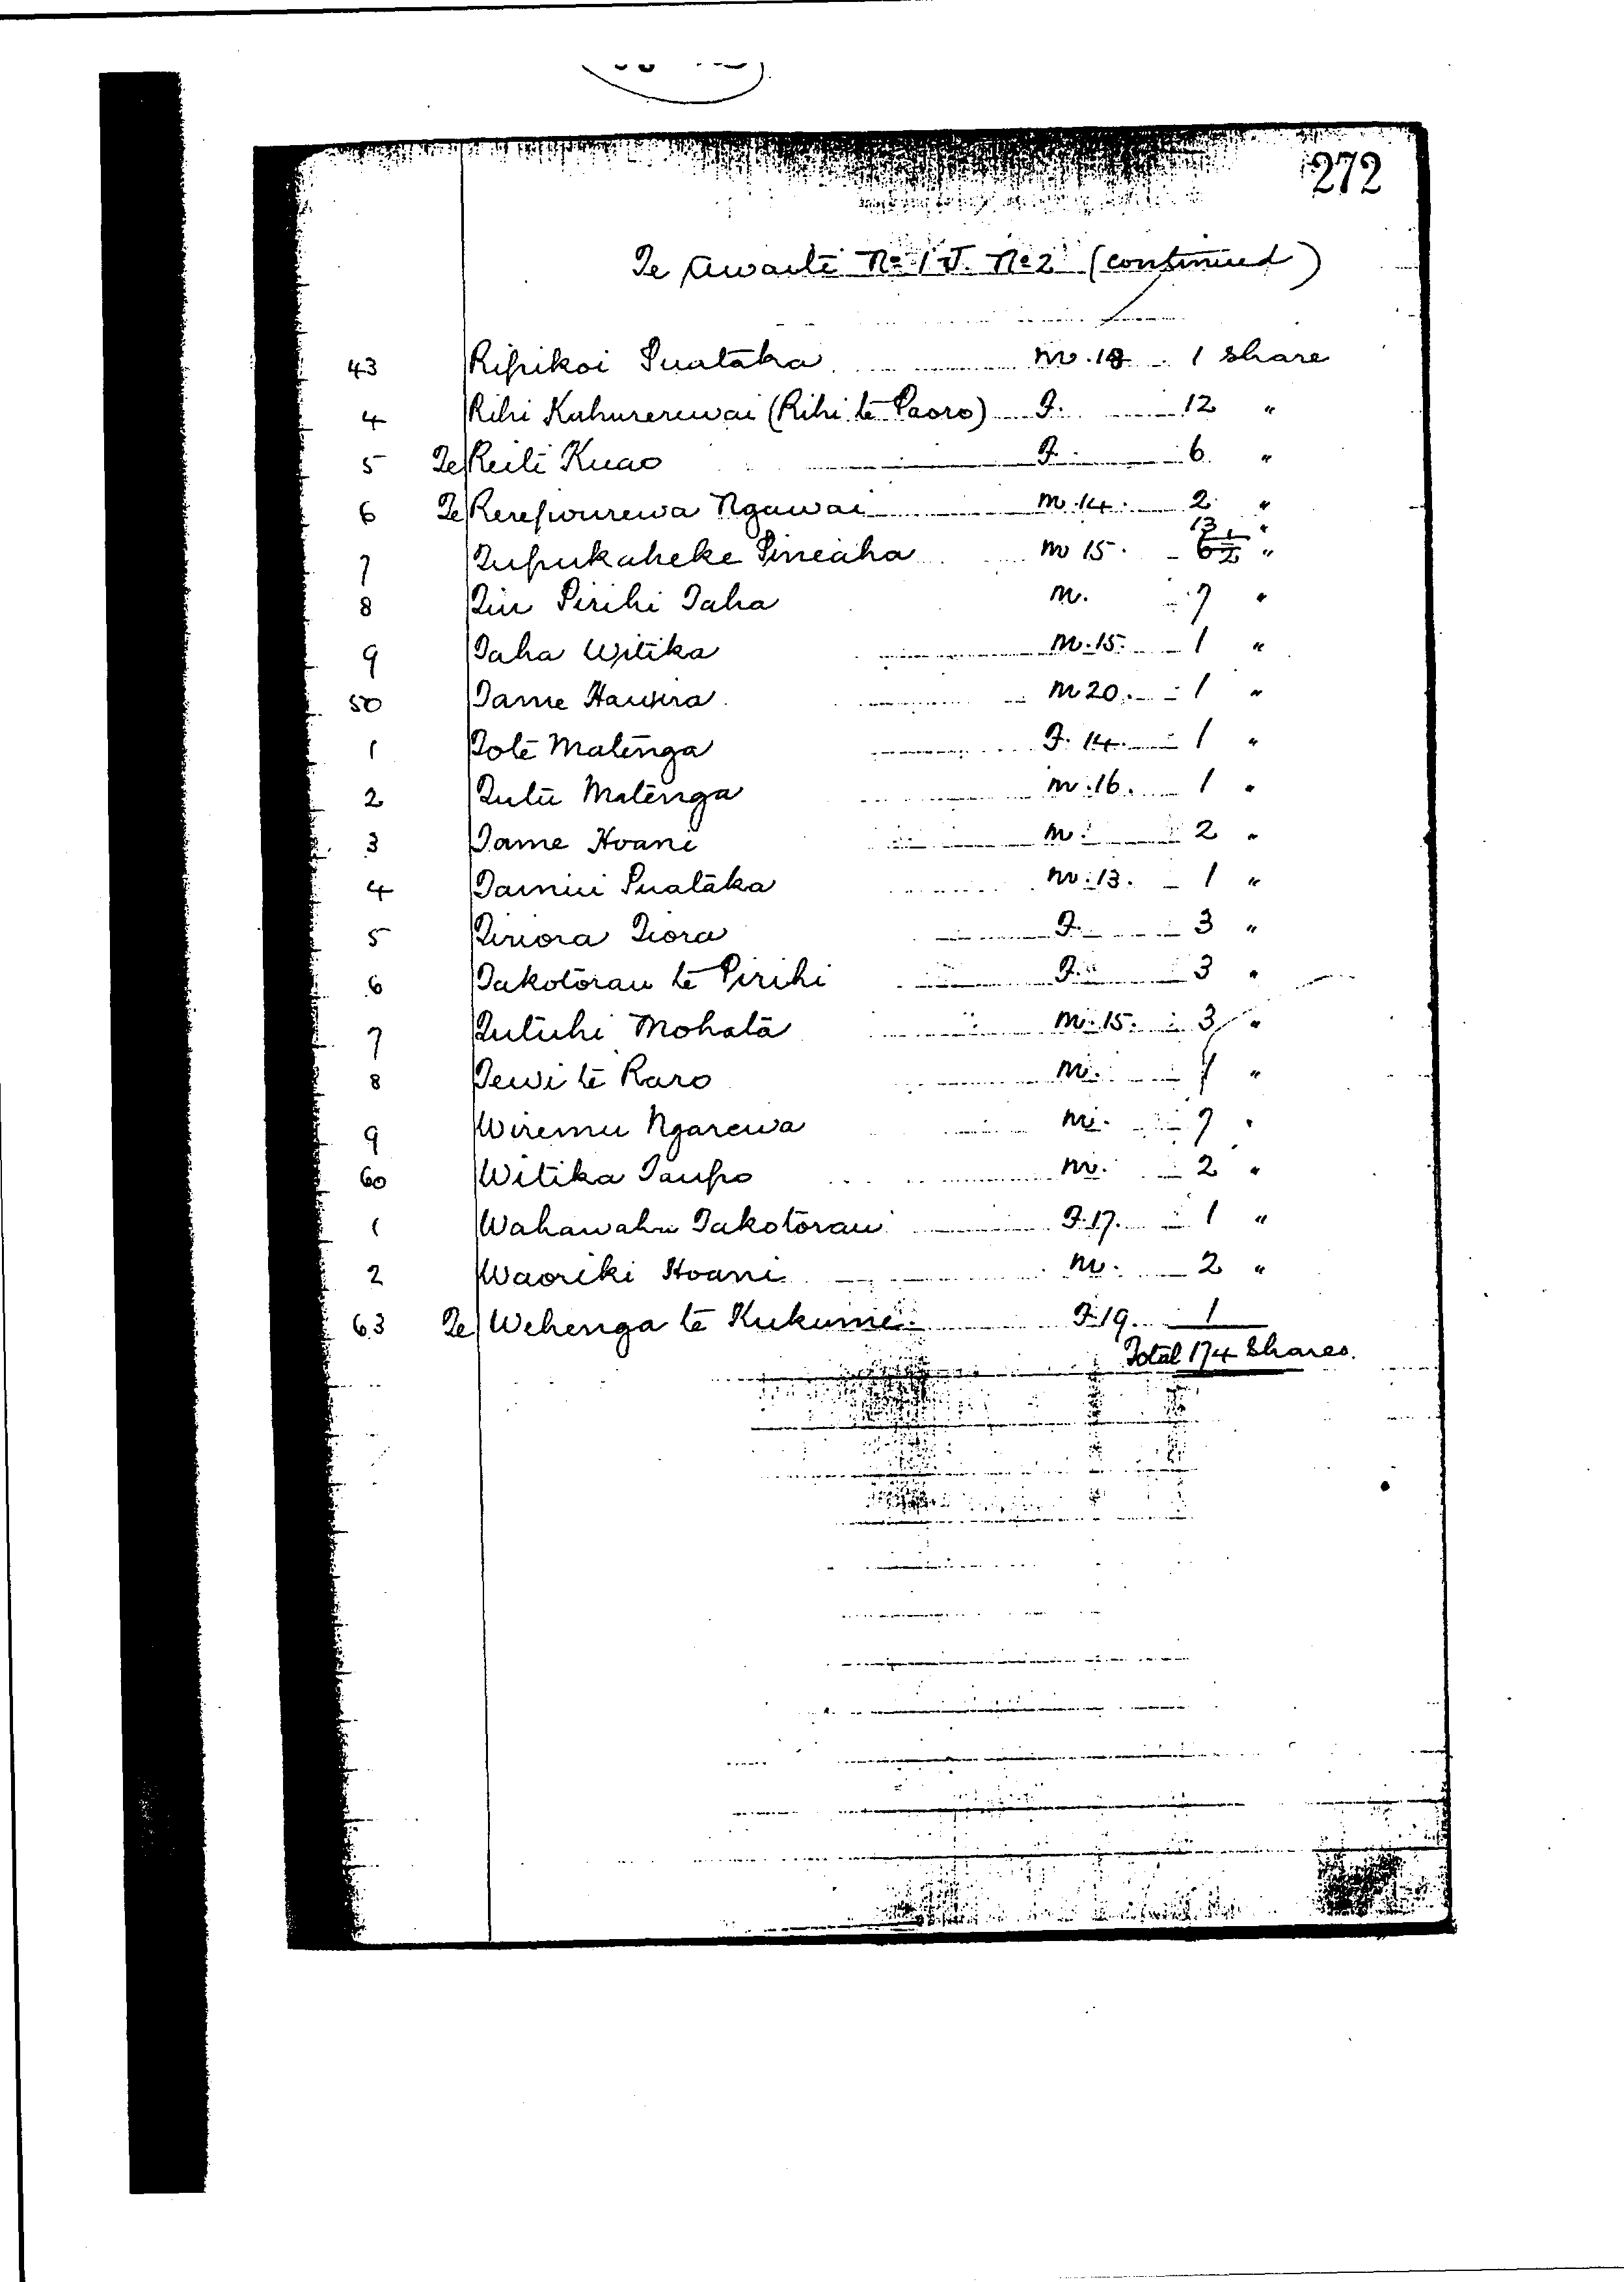 272
Te Awaite No 1 J. No 2 (continued)
43 Ripikoi Puataka m. 18 1 share
4 Rihi Kahurerewai (Rihi te Paoro) F. 12 "
5 Te Reiti Kuao F. 6 "
6 Te Rerepourewa Ngawai m. 14. 2 "
13 "
7 Tupukaheke Pineaha m 15. 6½ "
8 Tiu Pirihi Taha m. 7 "
9 Taha Witika m. 15. 1 "
50 Tame Haukra m 20. 1 "
1 Tote Matenga F. 14. 1 "
2 Tutu Matenga m. 16. 1 "
3 Tame Hoani m. 2 "
4 Tamiu Puataka m. 13. 1 "
5 Tiriora Tiora F. 3 "
6 Takotorau te Pirihi F. 3 "
7 Tutuhi Mohata m. 15. 3 "
8 Tewi te Raro m. 7 "
9 Wiremu Ngarewa m. 7 "
60 Witika Taupo m. 2 "
1 Wahawaha Takotorau F. 17. 1 "
2 Waoriki Hoani m. 2 "
63 Te Wehenga te Kukume F. 19. 1
Total 174 Shares.